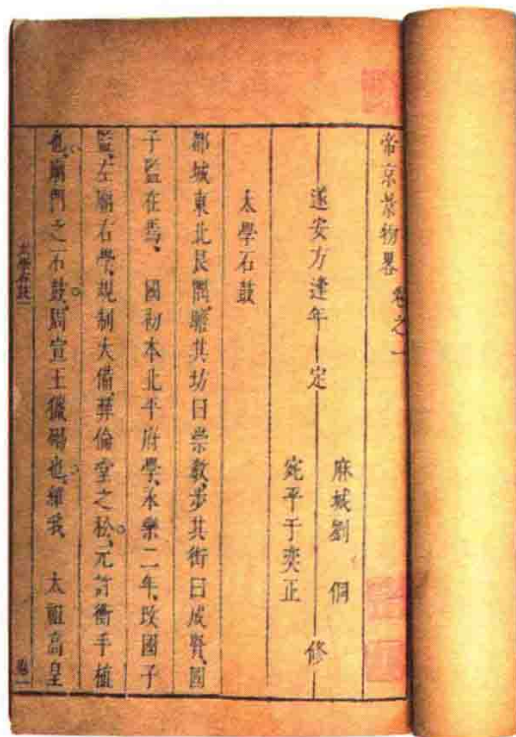 帝京景物畧 卷之一
麻城劉 侗
遂安方逢年 定 修
宛平于奕正
太學石鼓
都城東北艮隅、瞻其坊曰崇敎、步其街曰成賢、國
子監在焉、 國初本北平府學、永樂二年、改國子
監、左廟右學、規制大備、彝倫堂之松、元許衡手植
也、廟門之石鼓、周宣王獵碣也、維我 太祖高皇
太學石鼓 卷一